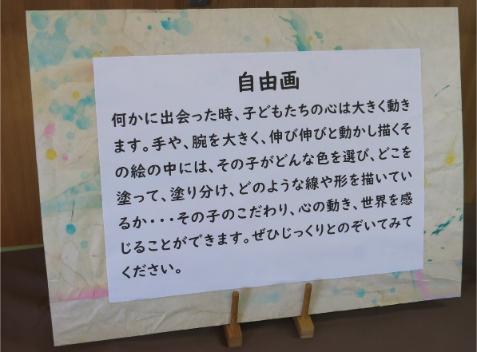 自由画
何かに出会った時、子どもたちの心は大きく動き
ます。手や、腕を大きく、伸び伸びと動かし描くそ
の絵の中には、その子がどんな色を選び、どこを
塗って、塗り分け、どのような線や形を描いてい
るか・・・その子のこだわり、心の動き、世界を感
じることができます。ぜひじっくりとのぞいてみて
ください。